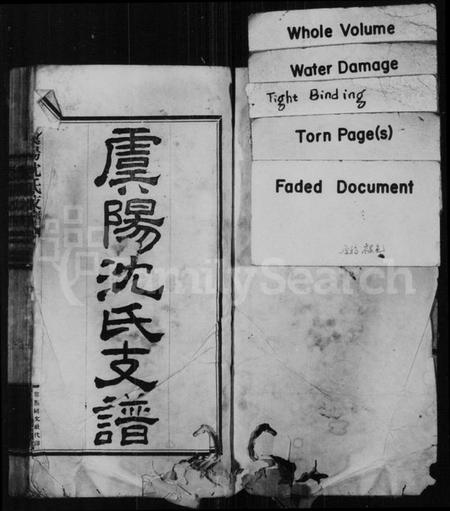 Whole Volume
Water Damage
Tight Binding
Torn Page(s)
Faded Document
虞陽沈氏支譜
FamilySearch